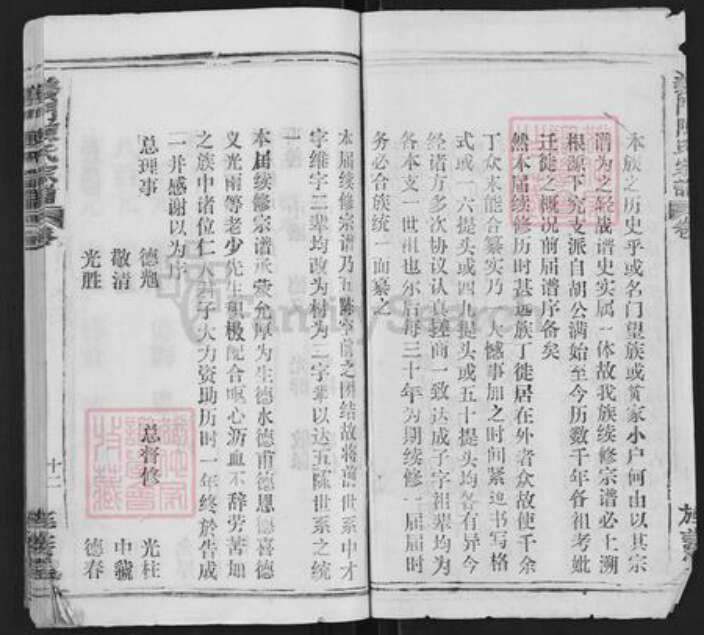 本族之历史乎或名门望族或贫家小户何由以其宗
谱为之轻战谱史实属一体故我族续修宗谱必上溯
根源下究支派自胡公满始至今历数千年各祖考妣
迁徒之概况前届谱序备矣
然本届续修历时甚远族丁徒居在外者众故使千余
丁众未能合纂实乃一大憾事加之时间紧迫书写格
式或一六提头或四九提头或五十提头均各有异今
经诸方多次协议认真磋商一致达成子字祖辈均为
各本支一世祖也尔后每三十年为期续修一届届时
务必合族统一面纂之
本届续修宗谱乃五陈空前之团结故将前世系中才
字维字二辈均改为材为二字辈以达五陈世系之统
一
本届续修宗谱承蒙允厚为生德永德甫德恩德喜德
义光雨等老少先生积极配合呕心沥血不辞劳苦加
之族中诸位仁人君子大力资助历时一年终於告成
一并感谢以为序
总理事 德灺 总督修 光柱
敬清 中虢
光胜 德春
十二
FamilySearch